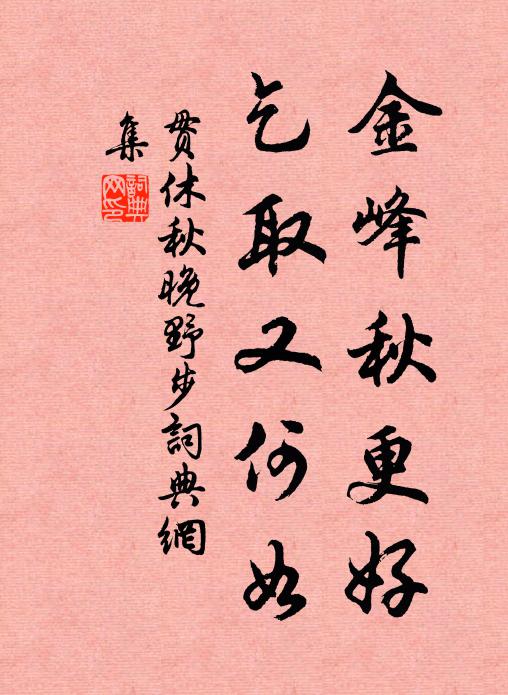 金峰秋更好
乞取又何如
貫休秋晚野步詞典網
集
詞典网印